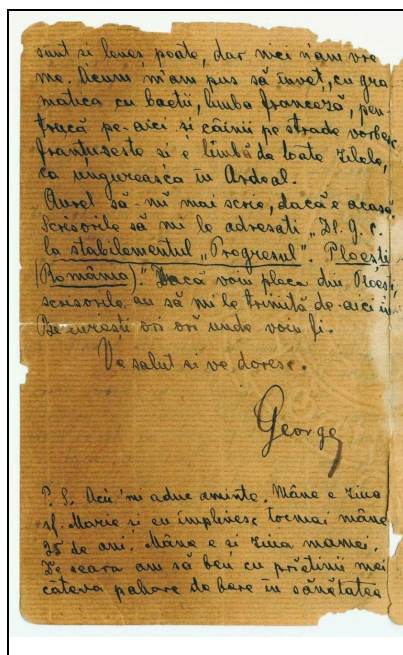 sunt si lenes poate, dar nici n'am vre
me. Acum m'am pus să învet, cu gra
matica cu baetii, limba franceză, pen
trucă pe-aici si câinii pe strade vorbesc
frantuseste si e limbă de toate zilele,
ca ungureasca în Ardeal.
Aurel să-mi mai scrie, dacă e acasă.
Scrisorile să mi le adresati „Dl. G. C.
la stabilementul „Progresul". Ploeşti
(România)." Dacă voiu pleca din Ploesti,
scrisorile au să mi le trimită de-aici în
Bucureşti ori ori unde voiu fi.
Ve salut si ve doresc.
George
P. S. Acu 'mi aduc aminte. Mâne e ziua
sf. Marie si eu împlinesc tocmai mâne
25 de ani. Mâne e si ziua mamei.
De seara am să beu cu prietinii mei
câteva pahare de bere în sănătatea